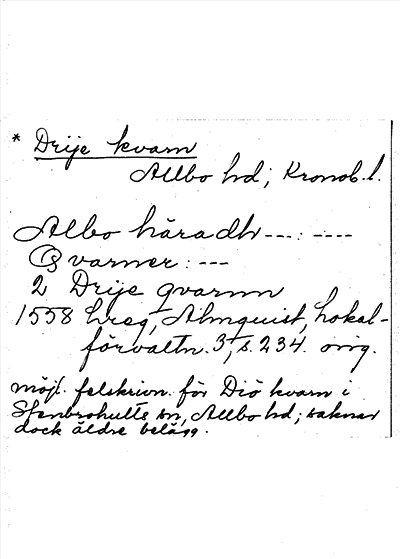 * Drije kvarn
Allbo hd; Kronob. l.
Albo häradh ---: ----
Qvarner: ---
2 Drije qvarnn
1558 hreg, Almquist, Lokal-
förvaltn. 3, s. 234. orig.
möjl. felskrivn. för Diö kvarn i
Stenbrohults sn, Allbo hd; saknar
dock äldre belägg.